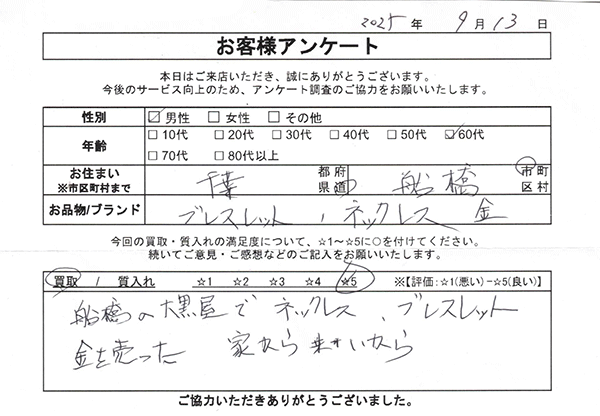 2025年 9月13日
お客様アンケート
本日はご来店いただき、誠にありがとうございます。
今後のサービス向上のため、アンケート調査のご協力をお願いいたします。
性別 ☑男性 □女性 □その他
年齢 □10代 □20代 □30代 □40代 □50代 ☑60代
□70代 □80代以上
お住まい ※市区町村まで 千葉 都道府県 船橋 市区町村
お品物/ブランド ブレスレット、ネックレス 金
今回の買取・質入れの満足度について、☆1～☆5に○を付けてください。
続いてご意見・ご感想などのご記入をお願いいたします。
買取 / 質入れ ☆1 ☆2 ☆3 ☆4 ☆5 ※【評価:☆1(悪い)-☆5(良い)】
船橋の大黒屋でネックレス、ブレスレット
金を売った 家から
ご協力いただきありがとうございました。